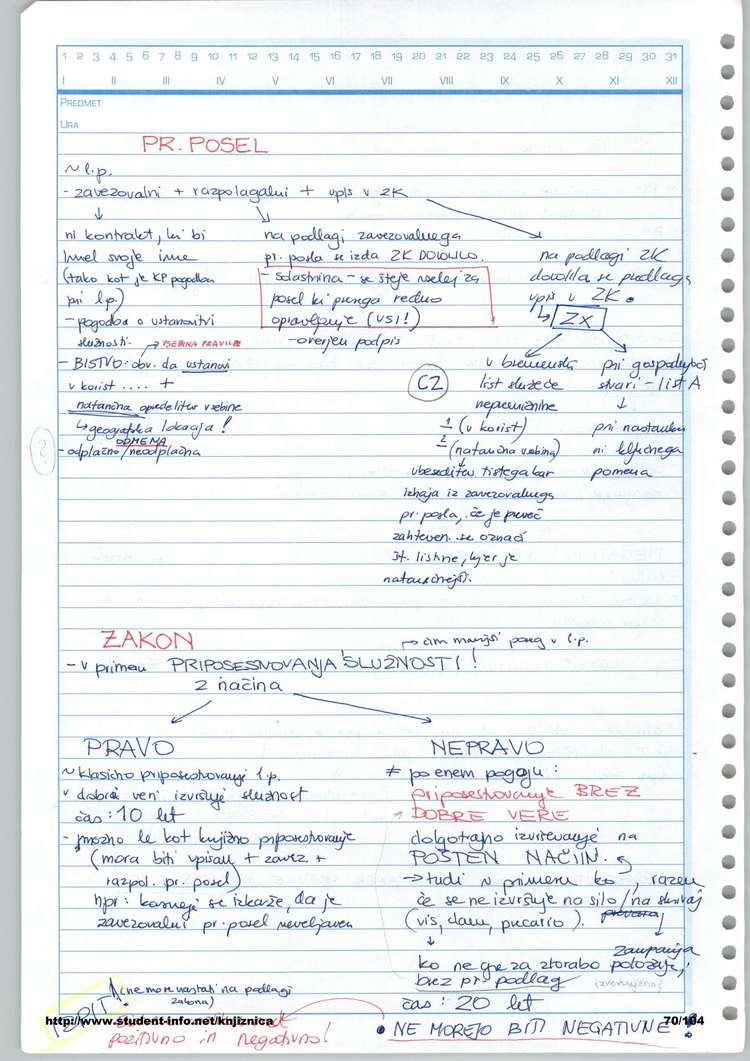 1 2 3 4 5 6 7 8 9 10 11 12 13 14 15 16 17 18 19 20 21 22 23 24 25 26 27 28 29 30 31
I II III IV V VI VII VIII IX X XI XII
PREDMET
URA
PR. POSEL
~ l.p.
- zavezovalni + razpolagalni + vpis v ZK
ni kontrakt, ki bi
imel svoje ime
(tako kot je KP pogodba
pri l.p.)
- pogodba o ustanovitvi
služnosti.
VSEBINA PRAVICE
- BISTVO: obv. da ustanovi
v korist .... +
natančna opredelitev vsebine
↳ geografska lokacija!
ODMENA
- odplačno/neodplačna
?
na podlagi zavezovalnega
pr. posla se izda ZK DOVOLILO.
- Solastnina - se šteje za
posel ki presega redno
opravljanje (VSI!)
- overjen podpis
na podlagi ZK
dovolila se predlaga
vpis v ZK.
↳ ZX
C2
v bremenski
list služeče
nepremičnine
1 (v korist)
2 (natančna vsebina)
ubeseditev tistega kar
izhaja iz zavezovalnega
pr. posla, če je preveč
zahteven. se označi
št. listine, kjer je
natančnejši.
pri gospodujoči
stvari - list A
↓
pri nastanku
ni ključnega
pomena
ZAKON
→ čim manjši poseg v l.p.
- v primeru PRIPOSESTVOVANJA SLUŽNOSTI!
2 načina
PRAVO
~ klasično priposestvovanje l.p.
v dobri veri izvršuje služnost
čas: 10 let
- možno le kot knjižno priposestvovanje
(mora biti vpisan + zavez. +
razpol. pr. posel)
npr: kasneje se izkaže, da je
zavezovalni pr. posel neveljaven
(ne more nastati na podlagi
zakona)
pozitivno in negativno!
NEPRAVO
≠ po enem pogoju:
priposestvovanje BREZ
DOBRE VERE
dolgotrajno izvrševanje na
POŠTEN NAČIN.
→ tudi v primeru ko, razen
če se ne izvršuje na silo/na skrivaj
(vis, clam, precario).
zaupanja
ko ne gre za zlorabo položaja,
brez pr. podlag
čas: 20 let
• NE MOREJO BITI NEGATIVNE!
http://www.student-info.net/knjiznica
70/104